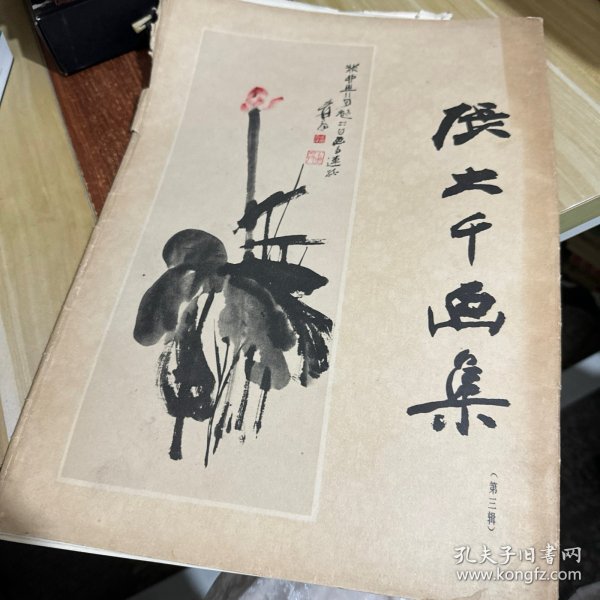 张大千画集
（第三辑）
孔夫子旧书网
www.kongfz.com